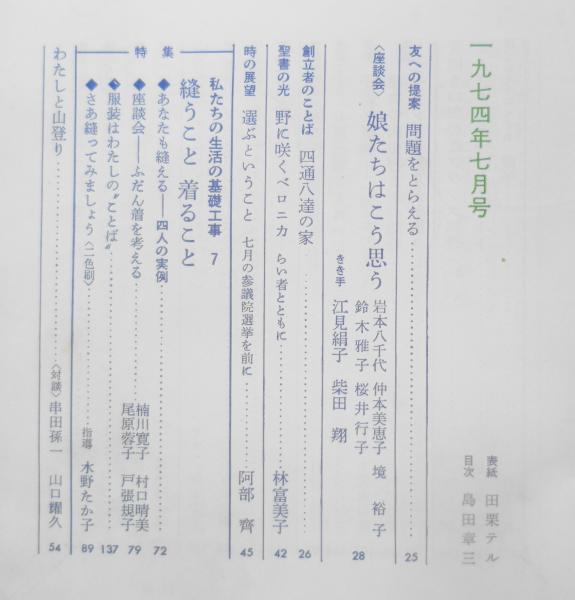 一九七四年七月号
表紙 田栗テル
目次 島田章三
友への提案 問題をとらえる……25
〈座談会〉 娘たちはこう思う
岩本八千代 仲本美恵子 境 裕子
鈴木雅子 桜井行子
きき手 江見絹子 柴田 翔 28
創立者のことば 四通八達の家……26
聖書の光 野に咲くベロニカ らい者とともに……林富美子 42
時の展望 選ぶということ 七月の参議院選挙を前に……阿部 齊 45
特集
私たちの生活の基礎工事 7
縫うこと 着ること
◆あなたも縫える——四人の実例……72
◆座談会——ふだん着を考える……楠川寛子 村口晴美 尾原蓉子 戸張規子 79
◆服装はわたしの〝ことば〟……137
◆さあ縫ってみましょう〈二色刷〉……指導 水野たか子 89
わたしと山登り……〈対談〉串田孫一 山口耀久 54